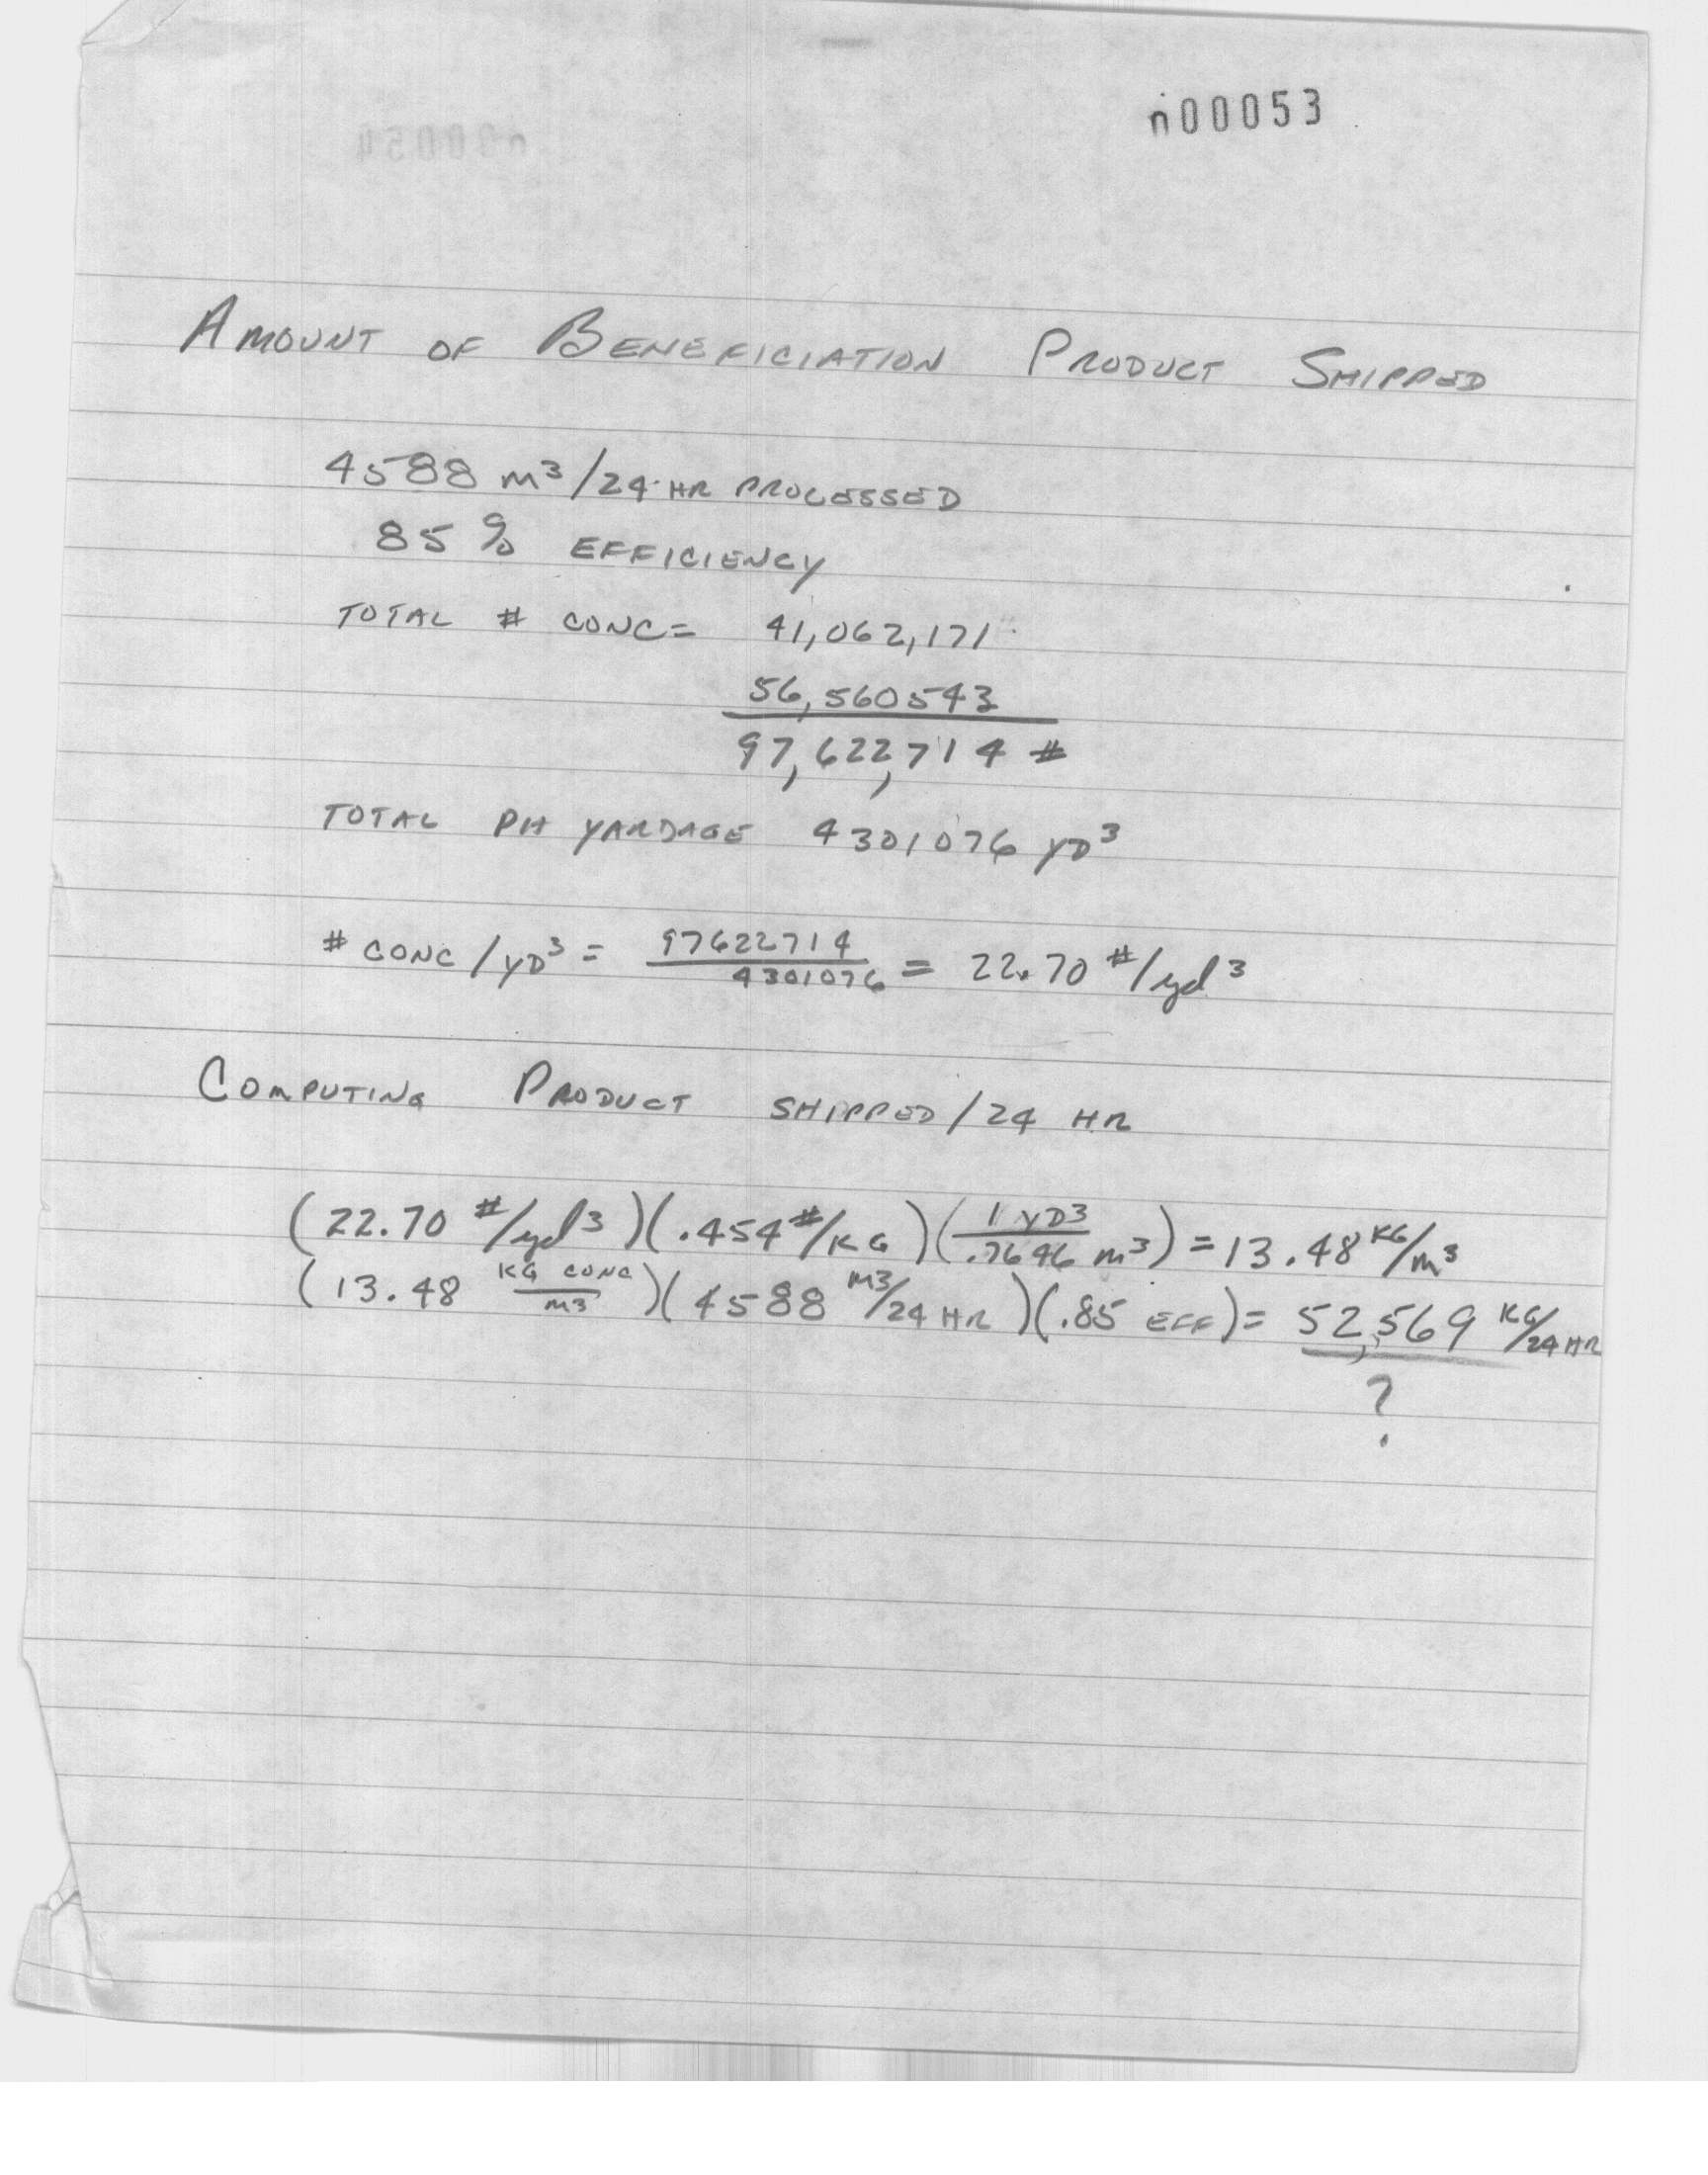 n00053
AMOUNT OF BENEFICIATION PRODUCT SHIPPED
4588 m³/24 HR PROCESSED
85 % EFFICIENCY
TOTAL # CONC = 41,062,171
56,560543
97,622,714 #
TOTAL PH YARDAGE 4301076 YD³
# CONC / YD³ = 97622714 / 4301076 = 22.70 #/yd³
COMPUTING PRODUCT SHIPPED / 24 HR
(22.70 #/yd³)(.454 #/KG)(1 YD³ / .7646 m³) = 13.48 KG/m³
(13.48 KG CONC / M3)(4588 M3/24 HR)(.85 EFF) = 52,569 KG/24 HR
?